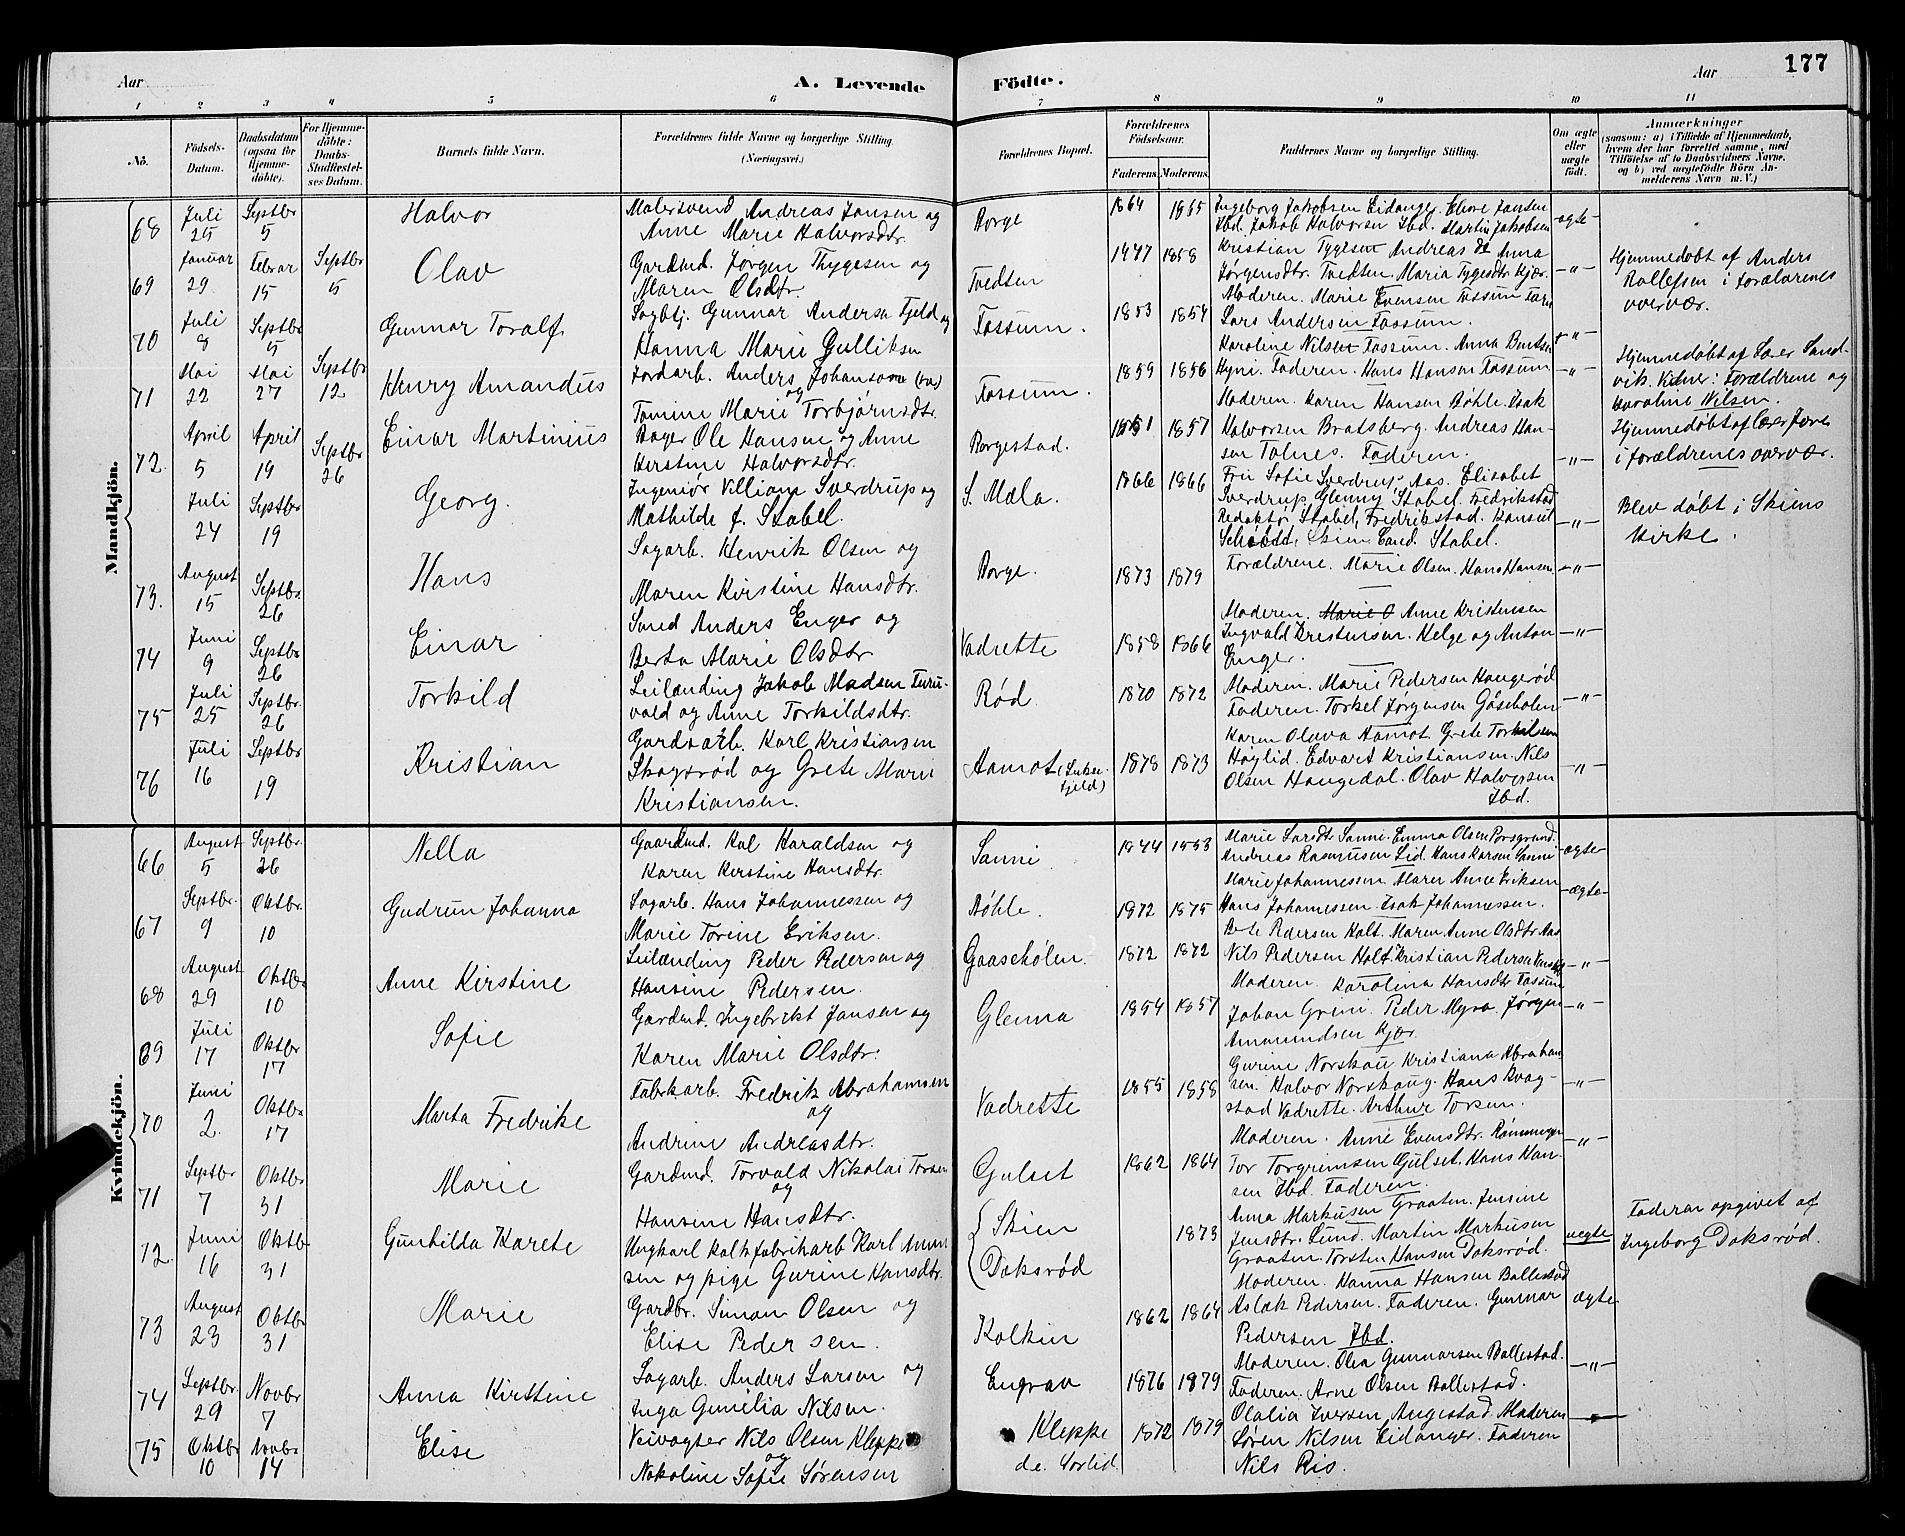 Aar
A. Levende
Födte.
Aar
177
1 2 3 4 5 6 7 8 9 10 11
No.
Födsels-Datum.
Daabsdatum (ogsaa for Hjemmedöbte).
For Hjemmedöbte: Daabs-Stadfæstelses Datum.
Barnets fulde Navn.
Forældrenes fulde Navne og borgerlige Stilling. (Næringsvei.)
Forældrenes Bopæl.
Forældrenes Födselsaar.
Faderens. Moderens.
Faddernes Navne og borgerlige Stilling.
Om ægte eller uægte födt.
Anmærkninger
(saasom: a) i Tilfælde af Hjemmedaab, hvem der har forrettet samme, med Tilföielse af to Daabsvidners Navne, og b) ved uægtefödte Börn Anmelderens Navn m. V.)
Mandkjön.
68 Juli 25 Septbr 5 Halvor
Malersvend Andreas Jansen og
Anne Marie Halvorsdtr.
Borge 1864 1865
Ingeborg Jakobsen Eidanger. Eline Jansen
Ibd. Jakob Halvorsen Ibd. Martin Jakobsen
ægte
69 Januar 29 Februar 15 Septbr 5 Olav
Gardmd. Jørgen Thygesen og
Maren Olsdtr.
Tvedten 1858
Kristian Tygesen Andreas Anna
Jørgensdtr. Tvedten. Maria Tygesdtr Kjær.
-"-
Hjemmedøbt af Anders
Rollefsen i Forældrenes
overvær.
70 Juli 8 Septbr 5 Gunnar Toralf
Sagbj. Gunnar Anderse Fjeld og
Hanna Marie Gulliksen
Fossum. 1853 1854
Moderen. Marie Evensen Fossum
Lars Andersen Fossum.
-"-
71 Mai 22 Mai 27 Septbr 12 Henry Amandus
Jordarb. Anders Johanson
og
Tomine Marie Torbjørnsdtr.
Fossum. 1859 1856
Karoline Nilsen Fossum. Anna
Hyni. Faderen. Hans Hansen Fossum
-"-
Hjemmedøbt af Lærer Sand-
vik. Vidner: Forældrene og
Karoline Nilsen.
72. April 5 April 19 Septbr 26 Einar Martinius
Bager Ole Hansen og Anne
Kerstine Halvorsdtr.
Borgestad. 1851 1857
Moderen. Karen Hansen Bøhle. Isak
Halvorsen Bratsberg. Andreas Han-
sen Tolnes. Faderen.
-"-
Hjemmedøbt af Lærer
i forældrenes overvær.
Juli 24 Septbr 19 Georg.
Ingeniør Villiam Sverdrup og
Mathilde f. Stabel.
S. Mæla. 1866 1866
Fru Sofie Sverdrup Aas. Elisabet
Sverdrup, Stabel. Fredrikstad
Redaktør Stabel, Fredrikstad. Konsul
Skien Cand. Stabel.
-"-
Blev døbt i Skiens
Kirke.
73. August 15 Septbr. 26 Hans
Sagarb. Henrik Olsen og
Maren Kirstine Hansdtr.
Borge. 1873 1879
Forældrene. Marie Olsen. Hans Hansen
-"-
74 Juni 9 Septbr 26 Einar
Smed Anders Enger og
Berta Marie Olsdtr
Vadrette 1858 1866
Moderen. Marie O Anne Kristensen
Ingvald Kristensen. Helge og Anton
Enger.
-"-
75 Juli 25 Septbr. 26 Torkild
Leilænding Jakob Madsen Furu-
vald og Anne Torkildsdtr.
Rød 1870 1872
Moderen. Marie Pedersen Haugerød
Faderen. Torkel Jørgensen Gåseholen
-"-
76 Juli 16 Septbr 19 Kristian
Gardsarb. Karl Kristiansen
Skogsrød og Grete Marie
Kristiansen.
Aamot 1878 1873
Karen Olava Aamot Grete Torkildsen
Høglid. Edvart Kristiansen. Nils
Olsen Haugedal. Olav Halvorsen
Ibd.
-"-
Kvindekjön.
66 August 5 Septbr. 26 Nella
Gaardmd. Hol Haraldsen og
Karen Kerstine Hansdtr.
Sanni 1844 1853
Marie Larsdtr Sanni. Emma Olsen Porsgrund
Andreas Rasmussen Lid. Hans Larsen Sanni
ægte
67 Septbr. 9 Oktbr. 10 Gudrun Johanna
Sagarb. Hans Johannessen og
Marie Torine Eriksen.
Bøhle. 1872 1875
Marie Johannessen Maren Anne Eriksen
Hans Johannessen. Isak Johannessen.
ægte
68 August 29 Oktbr 10 Anne Kirstine
Leilænding Peder Pedersen og
Hansine Pedersen.
Gaaseholen. 1872 1872
Pedersen Holt. Maren Anne Olsdtr Aas
Nils Pedersen Holt Kristian Pedersen
-"-
69 Juli 17 Oktbr 17 Sofie
Gardmd. Ingebrikt Jansen og
Karen Marie Olsdtr.
Glenna 1854 1857
Moderen. Karolina Hansdtr Fossum
Johan Grini. Peder Myra. Jørgen
Amundsen Kjær.
-"-
70 Juni 2. Oktbr 17 Marta Fredrikke
Fabrkarb. Fredrik Abrahamsen
og
Andrine Andreasdtr.
Vadrette 1855 1858
Gurine Norskau Kristiana Abraham
sen. Halvor Norskaug. Hans Kvag-
stad Vadrette. Arthur Torsen.
-"-
71 Septbr 7 Oktbr 31 Marie
Gardmd. Torvald Nikolai Torsen
og
Hansine Hansdtr.
Gulset 1862 1864
Moderen. Anne Evensdtr. Rømmungen
Tor Torgrimsen Gulset. Hans Han-
sen Ibd. Faderen.
-"-
72. Juni 16 Oktbr 31 Gunhilda Karete
Ungkarl kalkfabrikarb Karl
sen og pige Gurine Hansdtr.
Skien
Doksrød 1873
Anna Markusen Graaten. Jensine
Jensdtr. Lund. Martin Markusen
Graaten. Torsten Hansen Doksrød.
uægte
Faderen opgivet af
Ingeborg Doksrød.
73 August 23 Oktbr 31 Marie
Gardbr. Simon Olsen og
Elise Pedersen.
Kolkin 1862 1864
Moderen. Hanna Hansen Ballestad
Aslak Pedersen. Faderen. Gunnar
Pedersen Ibd.
ægte
74 Septbr. 29 Novbr 7 Anna Kirstine
Sagarb. Anders Larsen og
Inga Gunilia Nilsen.
Engrav 1876 1879
Moderen. Olea Gunnarsen Ballestad.
Faderen. Arne Olsen Ballestad.
-"-
75 Oktbr 10 Novbr 14 Elise
Veivogter Nils Olsen Kleppe
og
Nakoline Sofie Sørensen
Kleppe 1872 1879
Olalia Iversen Augestad. Moderen
Søren Nilsen Eidanger. Faderen
Nils Ris.